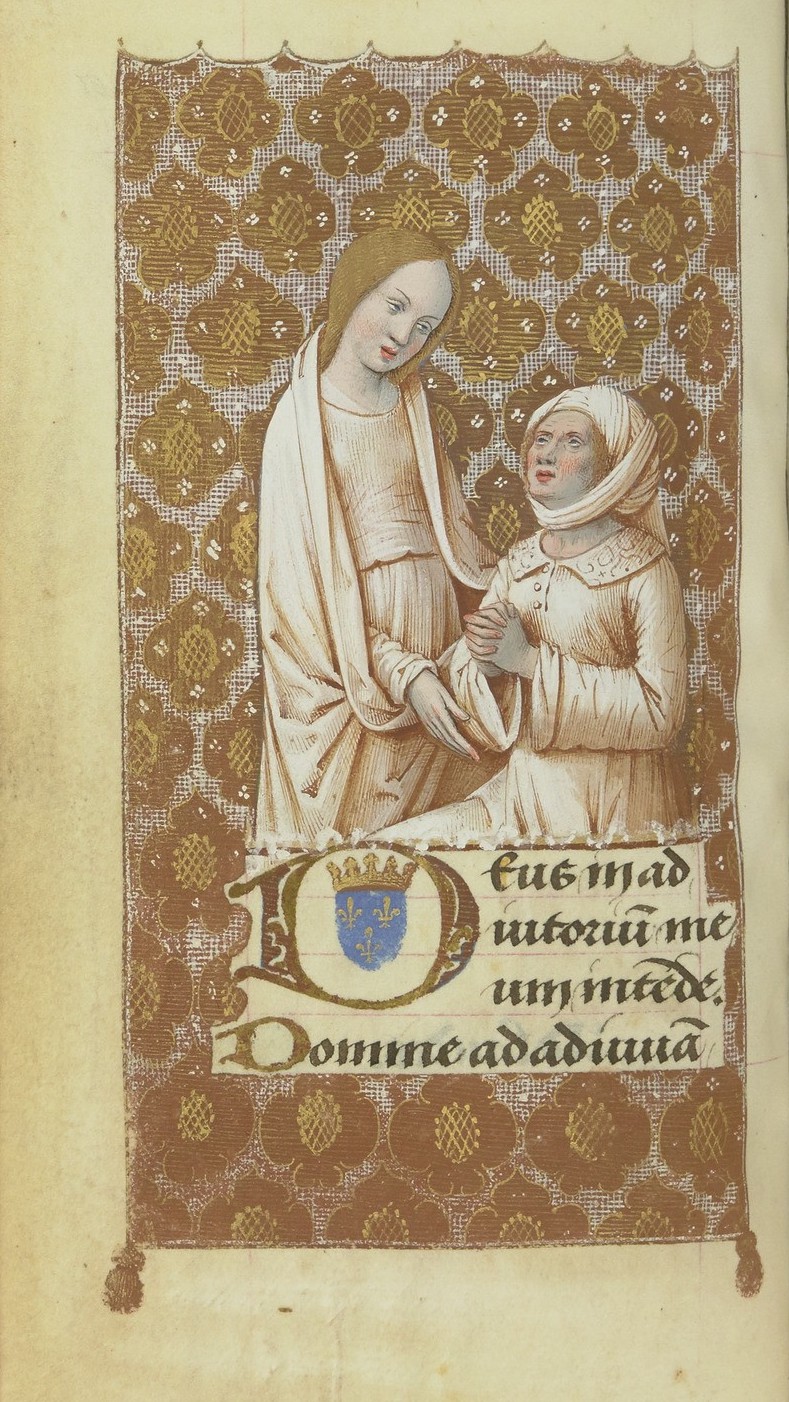 Deus in ad
iutoriū me
um intēde.
Domine ad adiuuā